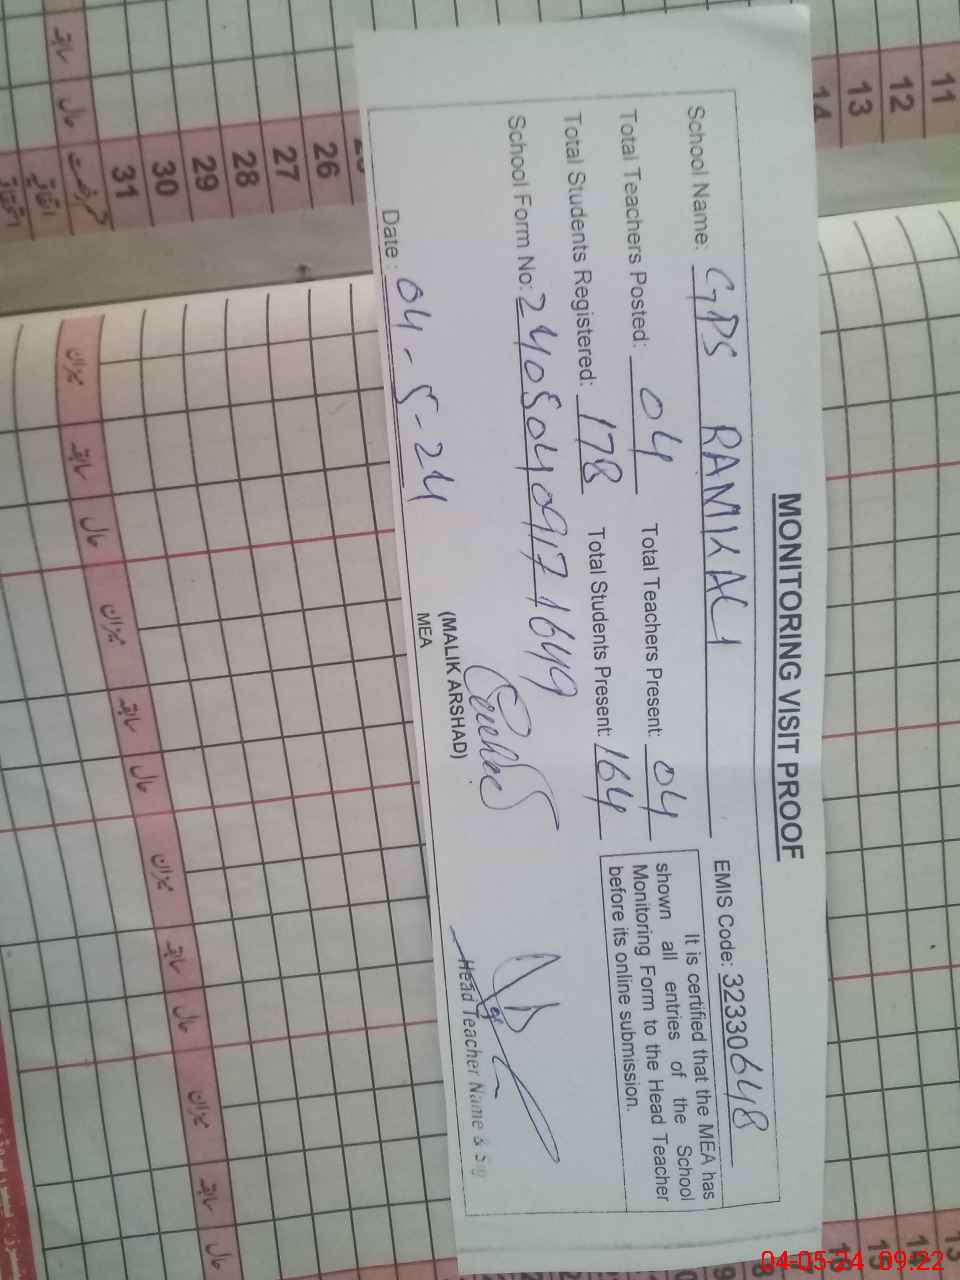 MONITORING VISIT PROOF
School Name: GPS RAMKALI EMIS Code: 32330648
Total Teachers Posted: 04 Total Teachers Present: 04
Total Students Registered: 178 Total Students Present: 164
School Form No: 2405040917 1649
It is certified that the MEA has
shown all entries of the School
Monitoring Form to the Head Teacher
before its online submission.
Date: 04-5-24
(MALIK ARSHAD)
MEA
Head Teacher Name & Sig
11
12
13
14
26
27
28
29
30
31
سابقہ
حال
میزان
سابقہ
حال
میزان
سابقہ
حال
میزان
سابقہ
حال
میزان
سابقہ
حال
04-05-24 09:22